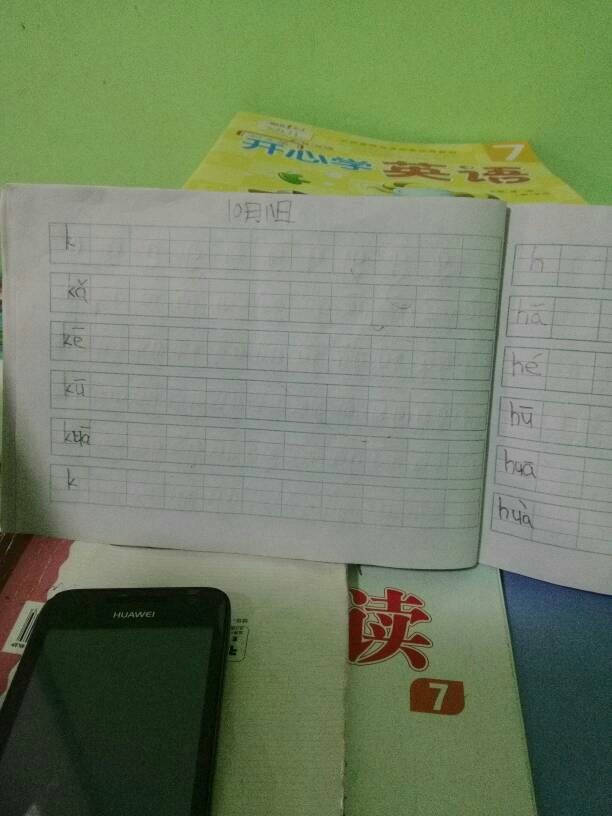 开心学 英语 7
10月11日
k
kǎ
kē
kū
kuā
k
h
hā
hé
hū
huā
huà
HUAWEI
读
7